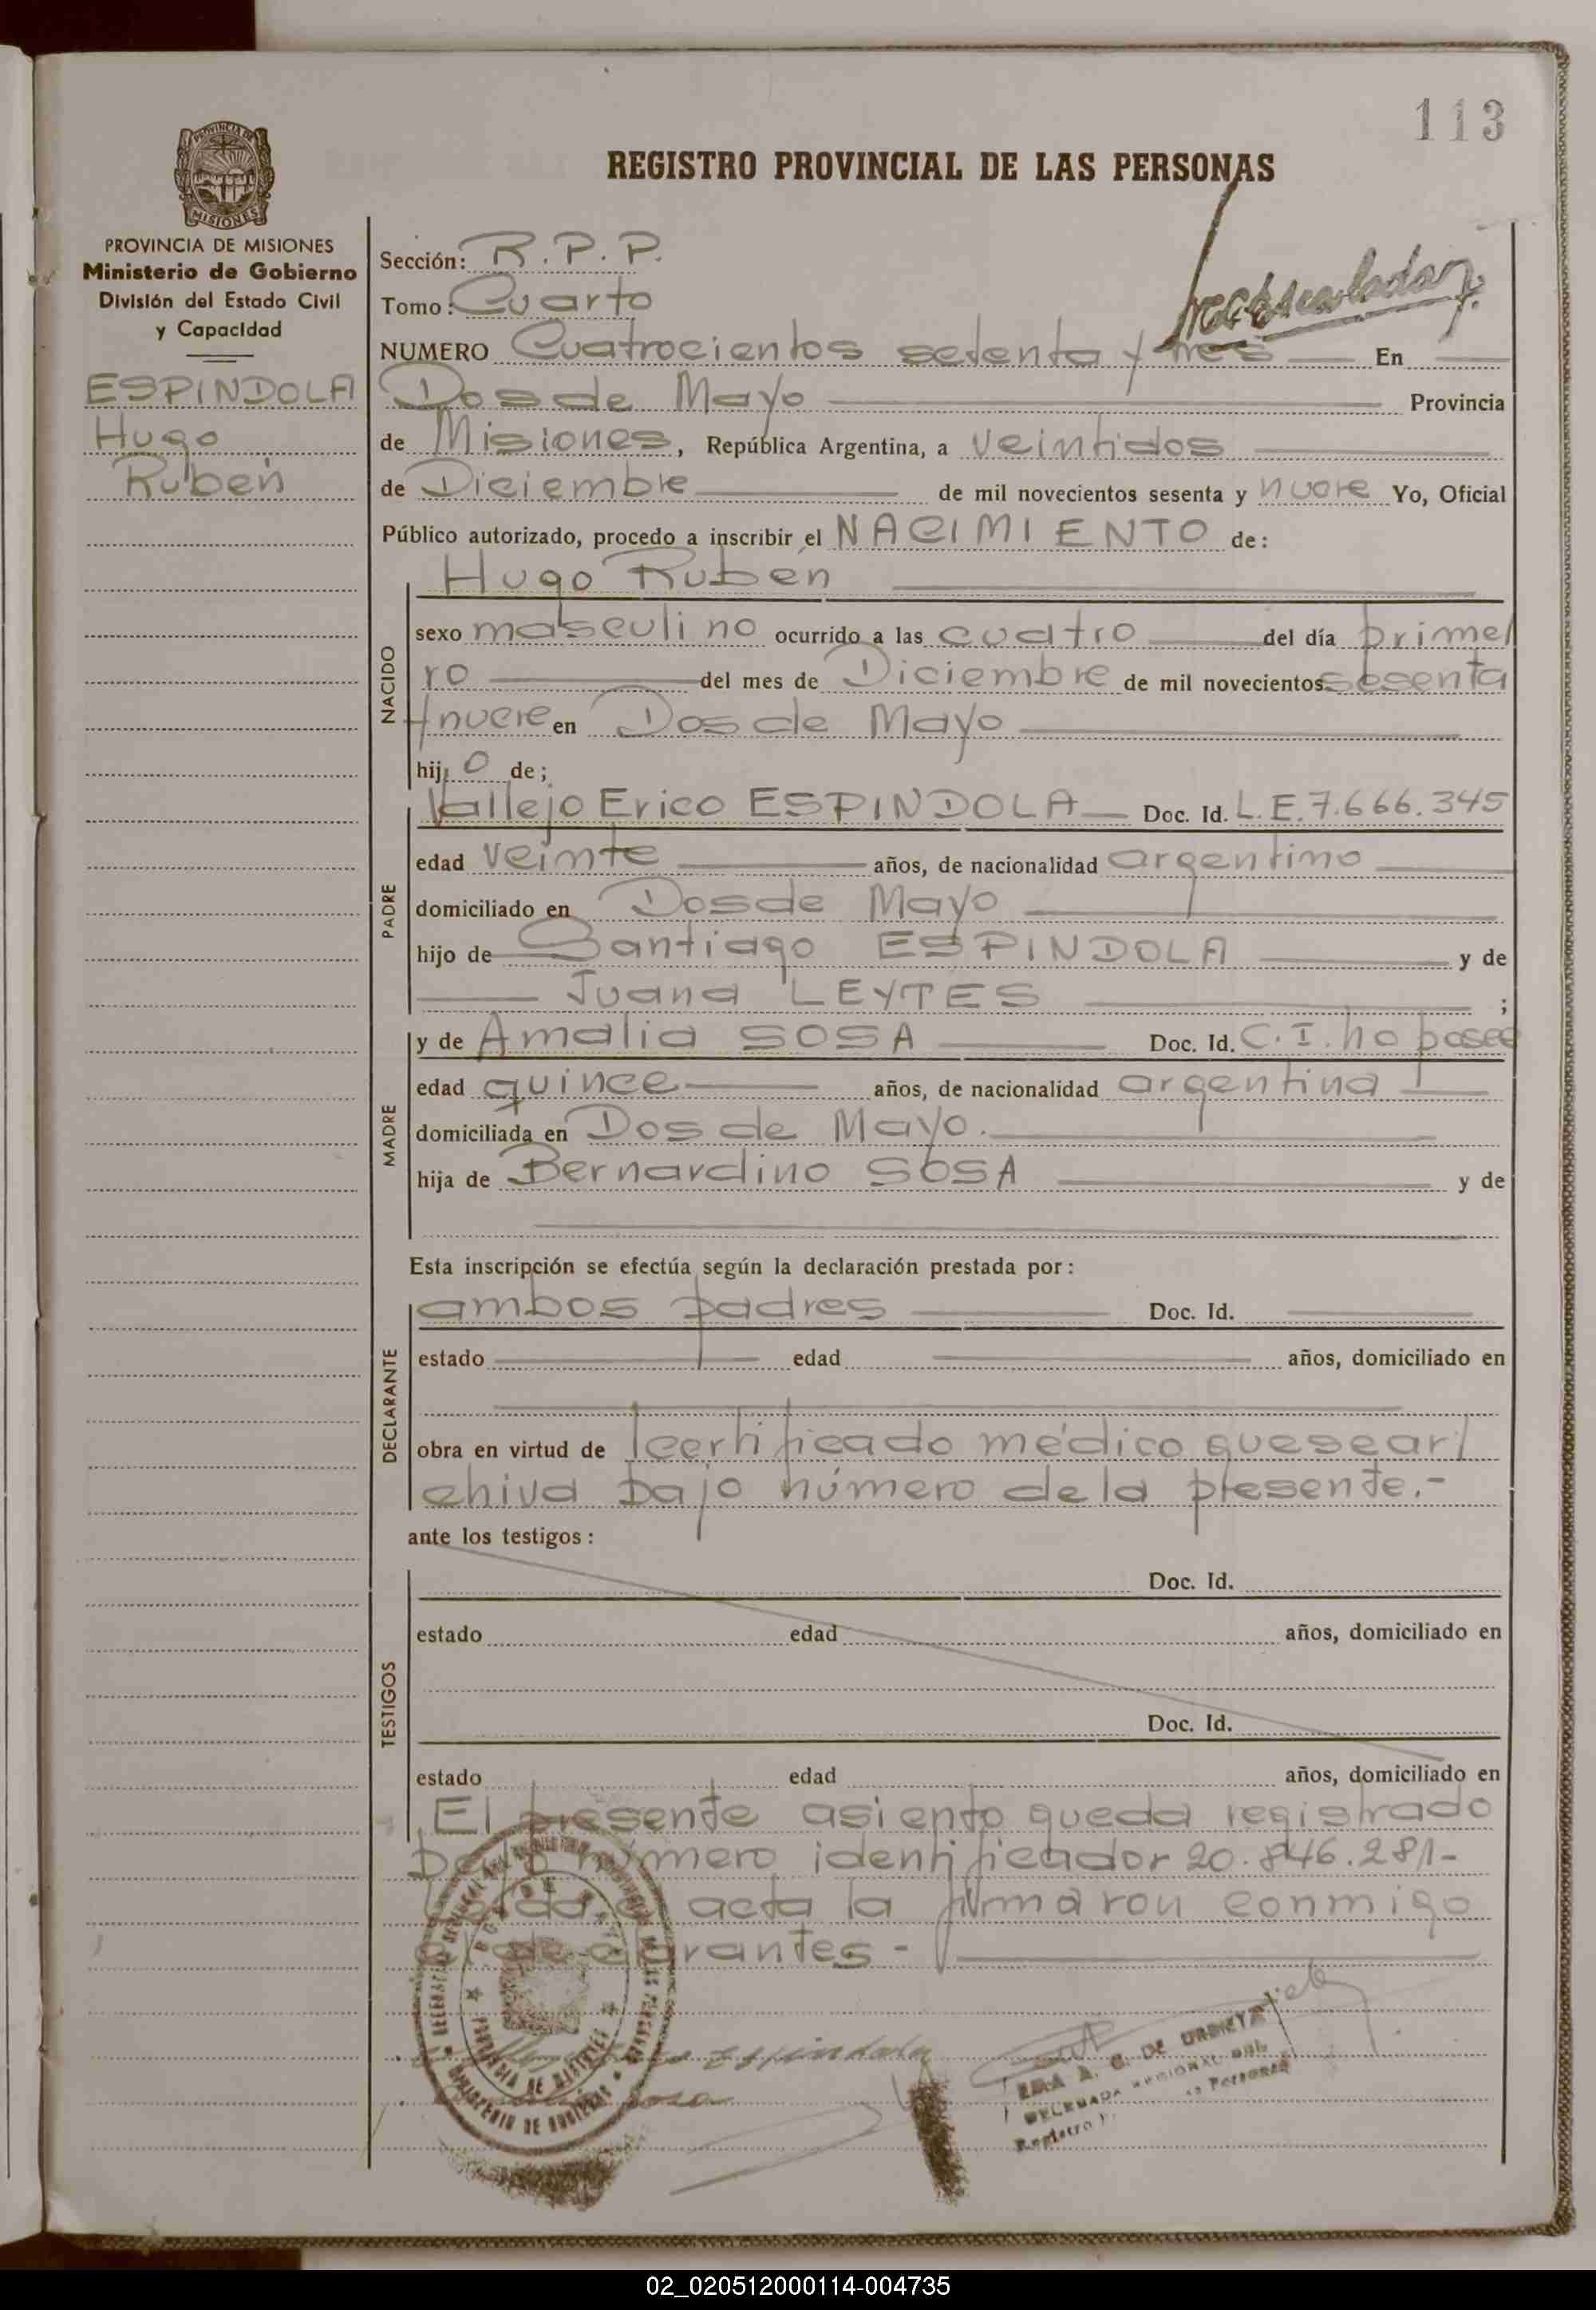 113
REGISTRO PROVINCIAL DE LAS PERSONAS
PROVINCIA DE MISIONES
Ministerio de Gobierno
División del Estado Civil
y Capacidad
ESPINDOLA
Hugo
Rubén
Sección: R.P.P.
Tomo: Cuarto
NUMERO Cuatrocientos setenta y tres En
Dos de Mayo Provincia
de Misiones, República Argentina, a veintidos
de Diciembre de mil novecientos sesenta y nueve Yo, Oficial
Público autorizado, procedo a inscribir el NACIMIENTO de:
Hugo Ruben
NACIDO
sexo masculino ocurrido a las cuatro del día prime/
ro del mes de Diciembre de mil novecientos sesenta
y nueve en Dos de Mayo
hijo de;
PADRE
Vallejo Erico ESPINDOLA Doc. Id. L.E. 7.666.345
edad veinte años, de nacionalidad argentino
domiciliado en Dos de Mayo
hijo de Santiago ESPINDOLA y de
Juana LEYTES ;
MADRE
y de Amalia SOSA Doc. Id. C.I. no posee
edad quince años, de nacionalidad argentina
domiciliada en Dos de Mayo.
hija de Bernardino SOSA y de
Esta inscripción se efectúa según la declaración prestada por:
DECLARANTE
ambos padres Doc. Id.
estado edad años, domiciliado en
obra en virtud de certificado médico que se ar/
chiva bajo número de la presente.-
ante los testigos:
TESTIGOS
Doc. Id.
estado edad años, domiciliado en
Doc. Id.
estado edad años, domiciliado en
El presente asiento queda registrado
bajo número identificador 20.846.281-
acta la firmaron conmigo
declarantes-
Espindola
Sosa
PROVINCIA DE MISIONES
MINISTERIO DE GOBIERNO
DELEGADA REGIONAL DEL
Registro Personas
02_020512000114-004735